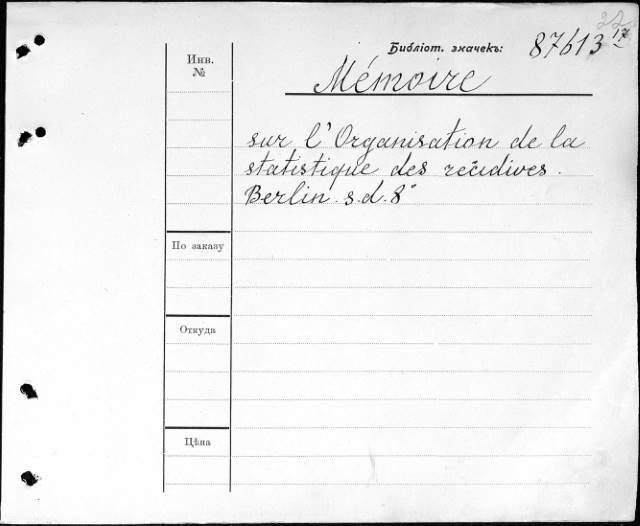 32
Библіот. значекъ: 87613 17
Инв.
№
Mémoire
sur l'Organisation de la
statistique des récidives.
Berlin. s.d. 8°
По заказу
Откуда
Цѣна